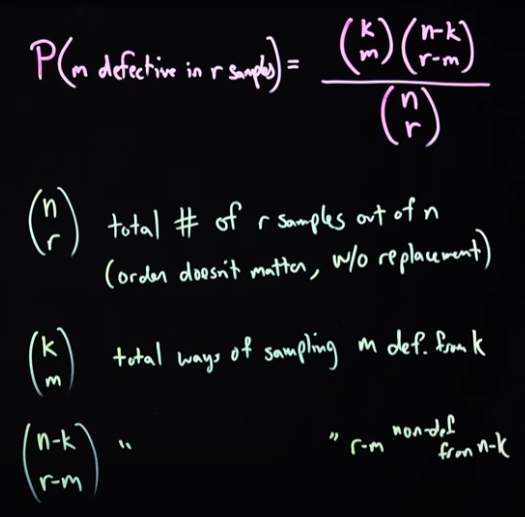 P(m defective in r samples) = (k m) (n-k r-m) / (n r)
(n r) total # of r samples out of n
(order doesn't matter, w/o replacement)
(k m) total ways of sampling m def. from k
(n-k r-m) " " r-m non-def from n-k